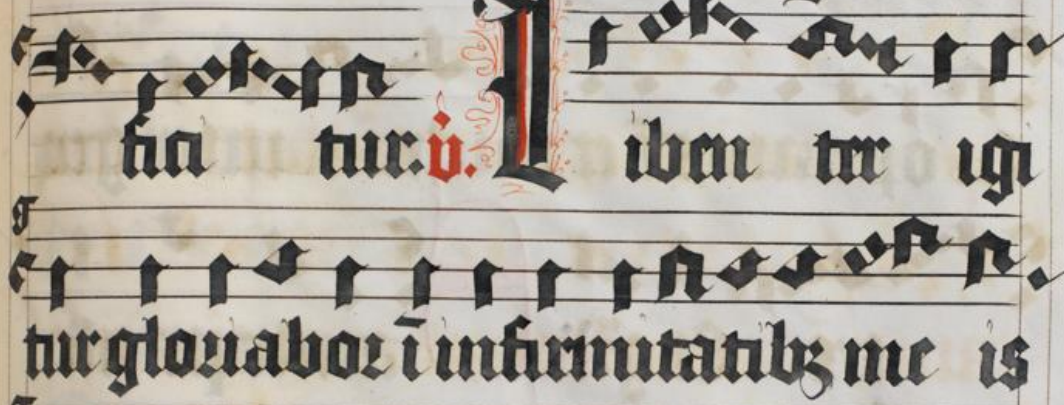 fici tur. v. Liben ter igi
tur gloriabor ī infirmitatibꝫ me is